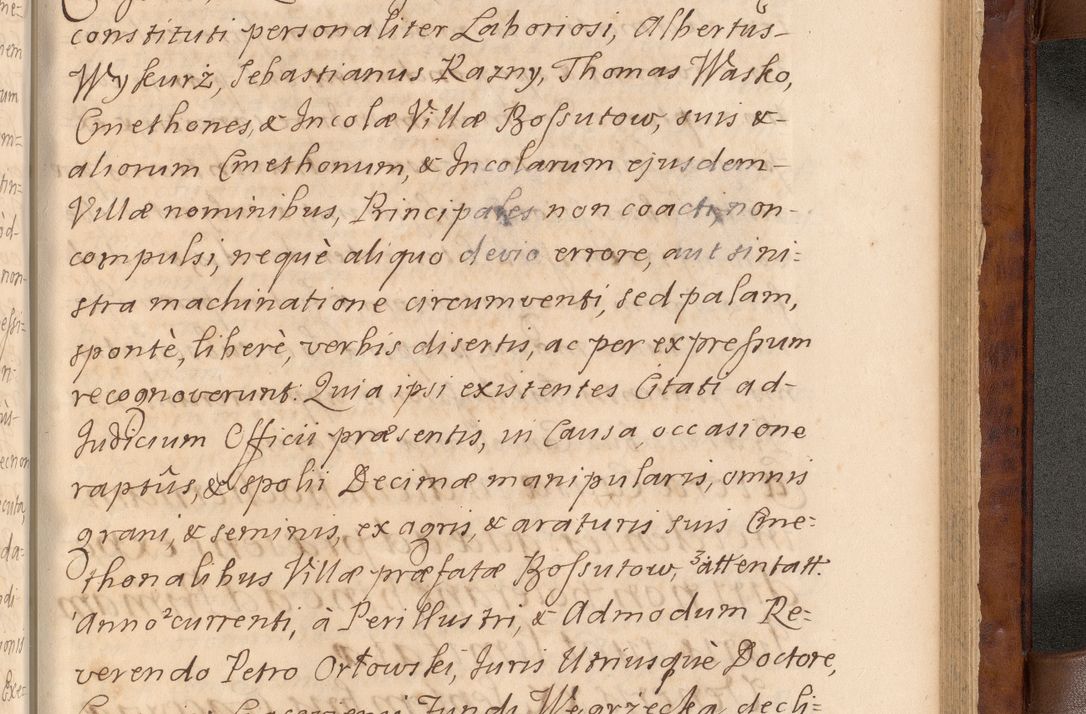 constituti personaliter Laboriosi, Albertus-
Wykurż, Sebastianus Razny, Thomas Wasko,
Cmethones, & Incolæ Villæ Boſsutow, suis &-
aliorum Cmethonum, & Incolarum ejusdem-
Villæ nominibus, Principales non coacti, non-
compulsi, nequè aliquo devio errore, aut sini:
stra machinatione circumventi, sed palam,
spontè, liberè, verbis disertis, ac per expreſsum
recognoverunt. Quia ipsi existentes Citati ad-
Judicium Officii præsentis, in Causa occasione
raptûs, & spolii Decimæ manipularis, omnis
grani, & seminis, ex agris, & araturis suis Cme:
thonalibus Villæ præfatæ Boſsutow, ³attentatt.
'Anno ²currenti, à Perillustri, & Admodum Re:
verendo Petro Orłowski, Juris Utriusquè Doctore,
Fundi Węgrzecka decli: